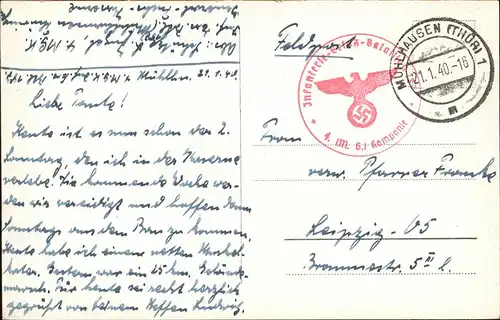 4. M.G.K. Mühlhsn. 21.1.40.
Liebe Tante!
Heute ist es nun schon der 2.
Sonntag, den ich in der Kaserne
verlebe. Die kommende Woche wer-
den wir vereidigt und hoffen dann
Sonntags aus dem Bau zu kommen.
Heute habe ich einen netten Muskel-
kater. Gestern war ein 25 km. Gelände-
marsch. Für heute sei recht herzlich
gegrüßt von Deinem Neffen Ludwig.
Feldpost
Infanterie-Ersatz-Bataillon
4. (M. G.) Kompanie
MÜHLHAUSEN (THÜR) 1
21.1.40.-16
m
Frau
verw. Pfarrer Francke
Leipzig-O5
Brommestr. 5 III l.